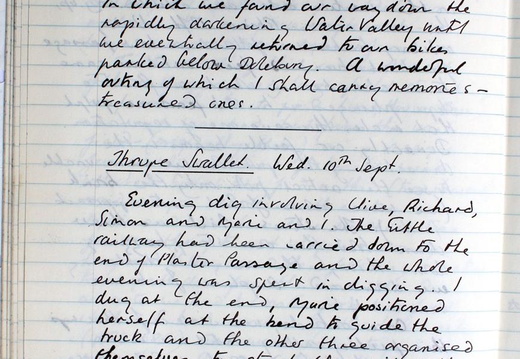 in which we found our way down the
rapidly darkening Water Valley until
we eventually returned to our bikes
parked below Dolebury. A wonderful
outing of which I shall carry memories –
treasured ones.
Thrupe Swallet. Wed. 10th Sept.
Evening dig involving Clive, Richard,
Simon and Marie and I. The little
railway had been carried down to the
end of Plaster Passage and the whole
evening was spent in digging. I
dug at the end, Marie positioned
herself at the bend to guide the
truck and the other three organised
themselves to